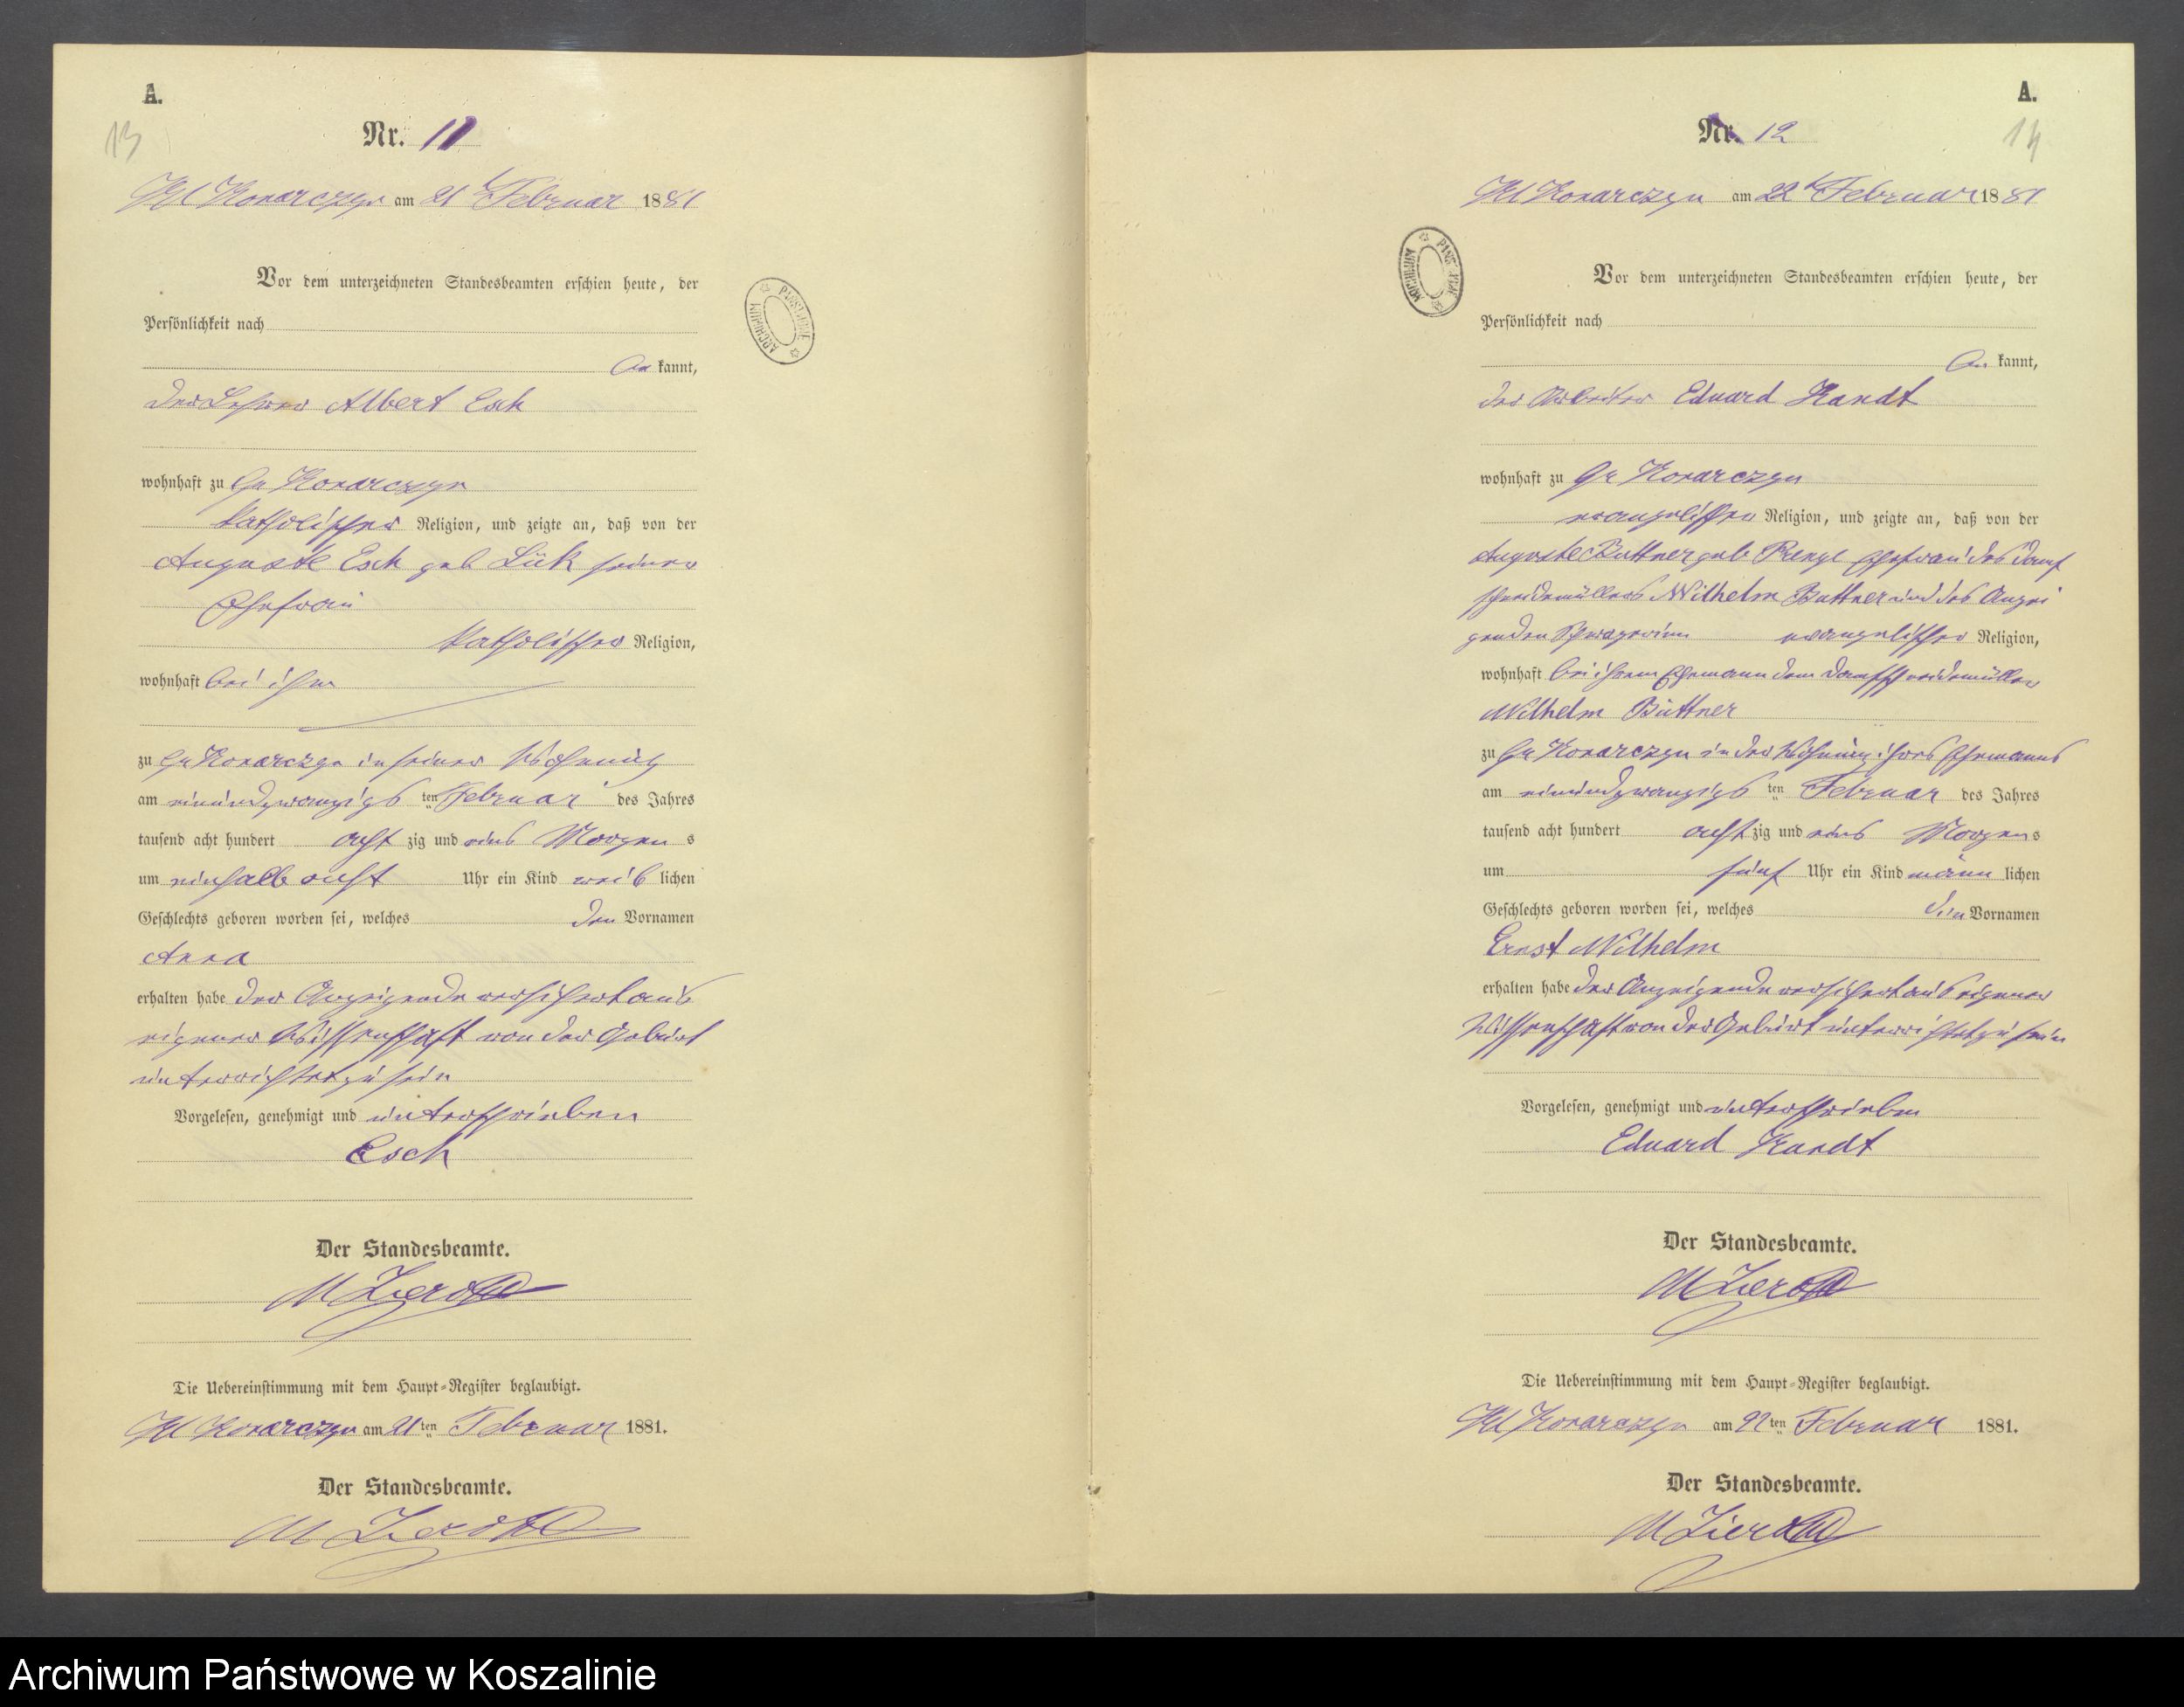 A.
13
Nr. 11
Kl Konarczyn am 21t Februar 1881
Vor dem unterzeichneten Standesbeamten erschien heute, der
Persönlichkeit nach
be kannt,
der Lehrer Albert Esch
wohnhaft zu Gr Konarczyn
katholischer Religion, und zeigte an, daß von der
Auguste Esch geb Lück seiner
Ehefrau
katholischer Religion,
wohnhaft bei ihm
zu Gr Konarczyn in seiner Wohnung
am einundzwanzigs ten Februar des Jahres
tausend acht hundert acht zig und eins Morgen s
um einhalb acht Uhr ein Kind weib lichen
Geschlechts geboren worden sei, welches den Vornamen
Anna
erhalten habe der Anzeigende versichert aus
eigener Wissenschaft von der Geburt
unterrichtet zu sein
Vorgelesen, genehmigt und unterschrieben
Esch
Der Standesbeamte.
Die Uebereinstimmung mit dem Haupt-Register beglaubigt.
Kl Konarczyn am 21ten Februar 1881.
Der Standesbeamte.
ARCHIWUM PAŃSTWOWE
A.
14
Nr. 12
Kl Konarczyn am 22t Februar 1881
Vor dem unterzeichneten Standesbeamten erschien heute, der
Persönlichkeit nach
be kannt,
der Arbeiter Eduard Kandt
wohnhaft zu Gr Konarczyn
evangelischer Religion, und zeigte an, daß von der
Auguste Buttner geb Ehefrau des Damf
schneidemüllers Wilhelm Buttner und des Anzei
genden Schwägerinn evangelischer Religion,
wohnhaft bei ihrem Ehemann dem Damfschneidemüller
Wilhelm Büttner
zu Gr Konarczyn in der Wohnung ihres Ehemanns
am einundzwanzigs ten Februar des Jahres
tausend acht hundert acht zig und eins Morgen s
um fünf Uhr ein Kind männ lichen
Geschlechts geboren worden sei, welches die Vornamen
Ernst Wilhelm
erhalten habe der Anzeigende versichert aus eigener
Wissenschaft von der Geburt unterrichtet zu sein
Vorgelesen, genehmigt und unterschrieben
Eduard Kandt
Der Standesbeamte.
Die Uebereinstimmung mit dem Haupt-Register beglaubigt.
Kl Konarczyn am 22ten Februar 1881.
Der Standesbeamte.
Archiwum Państwowe w Koszalinie